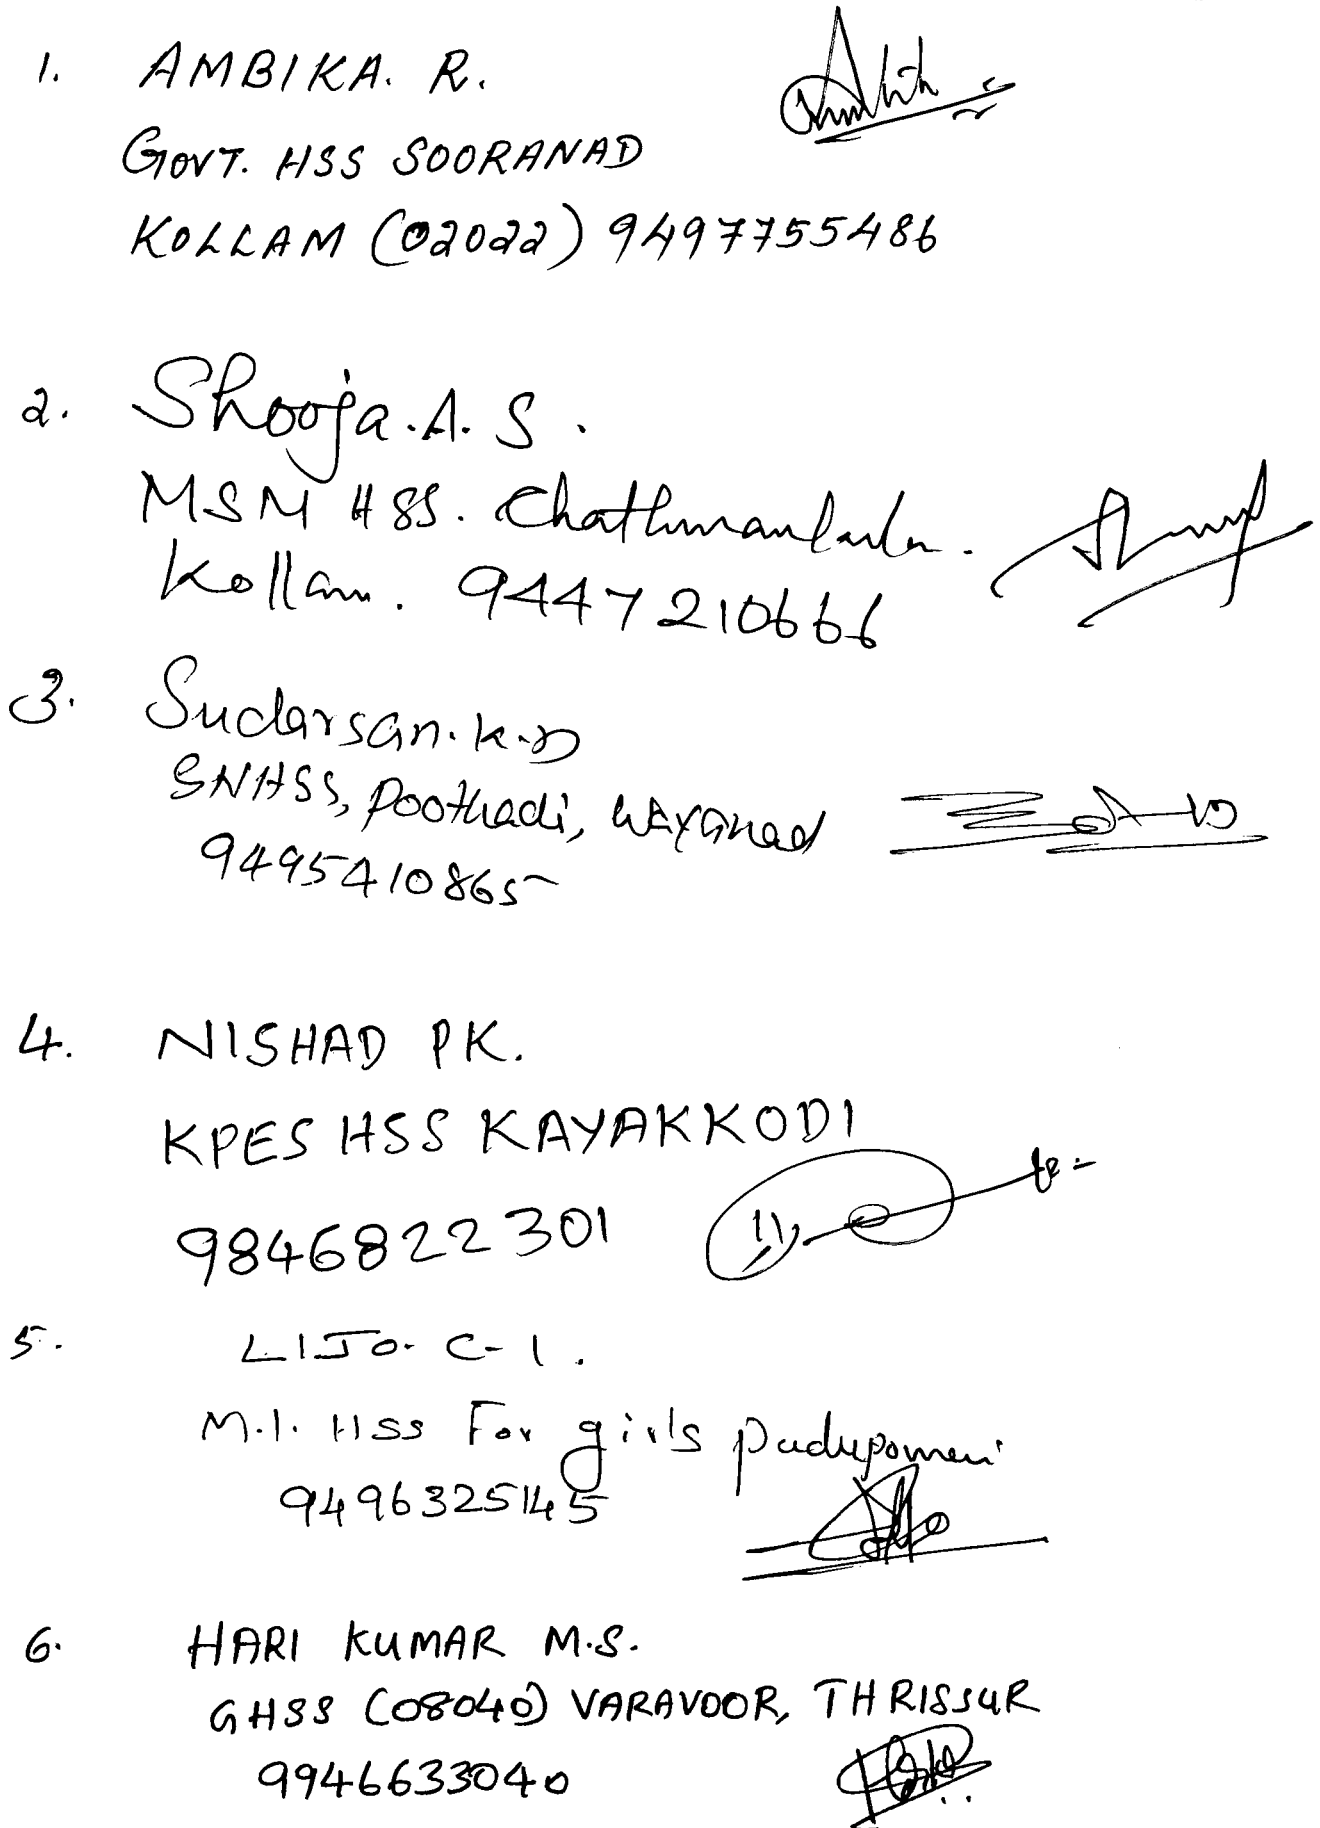 1. AMBIKA. R.
GOVT. HSS SOORANAD
KOLLAM (02022) 9497755486
2. Shooja. A. S.
MSM HSS.
Kollam. 9447210666
3. Sudarsan. K. D
SNHSS, Poothadi, Wayanad
9495410865
4. NISHAD PK.
KPES HSS KAYAKKODI
9846822301
5. LIJO. C-I.
M.I. HSS For girls
9496325145
6. HARI KUMAR M.S.
GHSS (08040) VARAVOOR, THRISSUR
9946633040